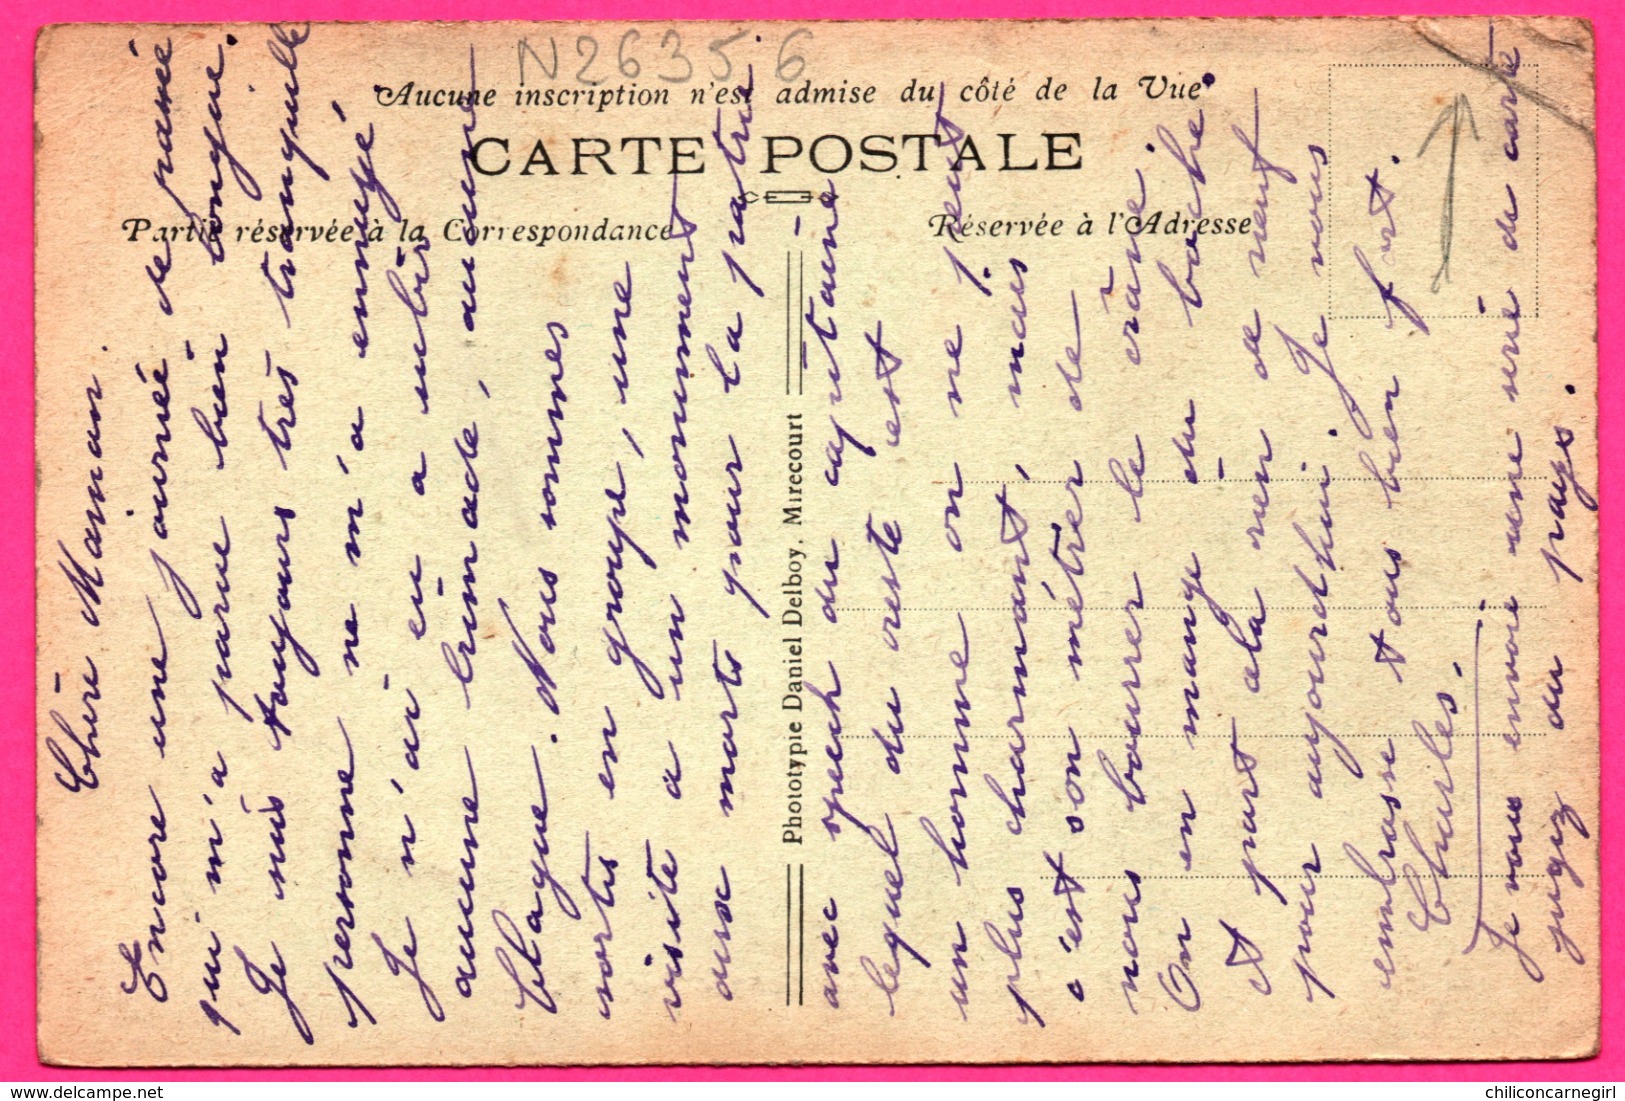 N26356
Aucune inscription n'est admise du côté de la Vue
CARTE POSTALE
Partie réservée à la Correspondance
Réservée à l'Adresse
Phototypie Daniel Delboy. Mirecourt
Chère Maman.
Encore une journée de passée
qui m'a parue bien longue.
Je suis toujours très tranquille
personne ne m'a ennuyé.
Je n'ai eu a subir
aucune brimade, aucune
blague. Nous sommes
sortis en groupe, une
visite a un monument
aux morts pour la patrie
avec speech du capitaine
lequel du reste est
un homme on ne peut
plus charmant, mais
c'est son métier de
nous bourrer le crâne.
On en mange du boche
et part ala rien de neuf
pour aujourd'hui. Je vous
embrasse tous bien fort.
Charles.
Je vous envoie une série de carte
jugez du pays.
chiliconcarnegirl